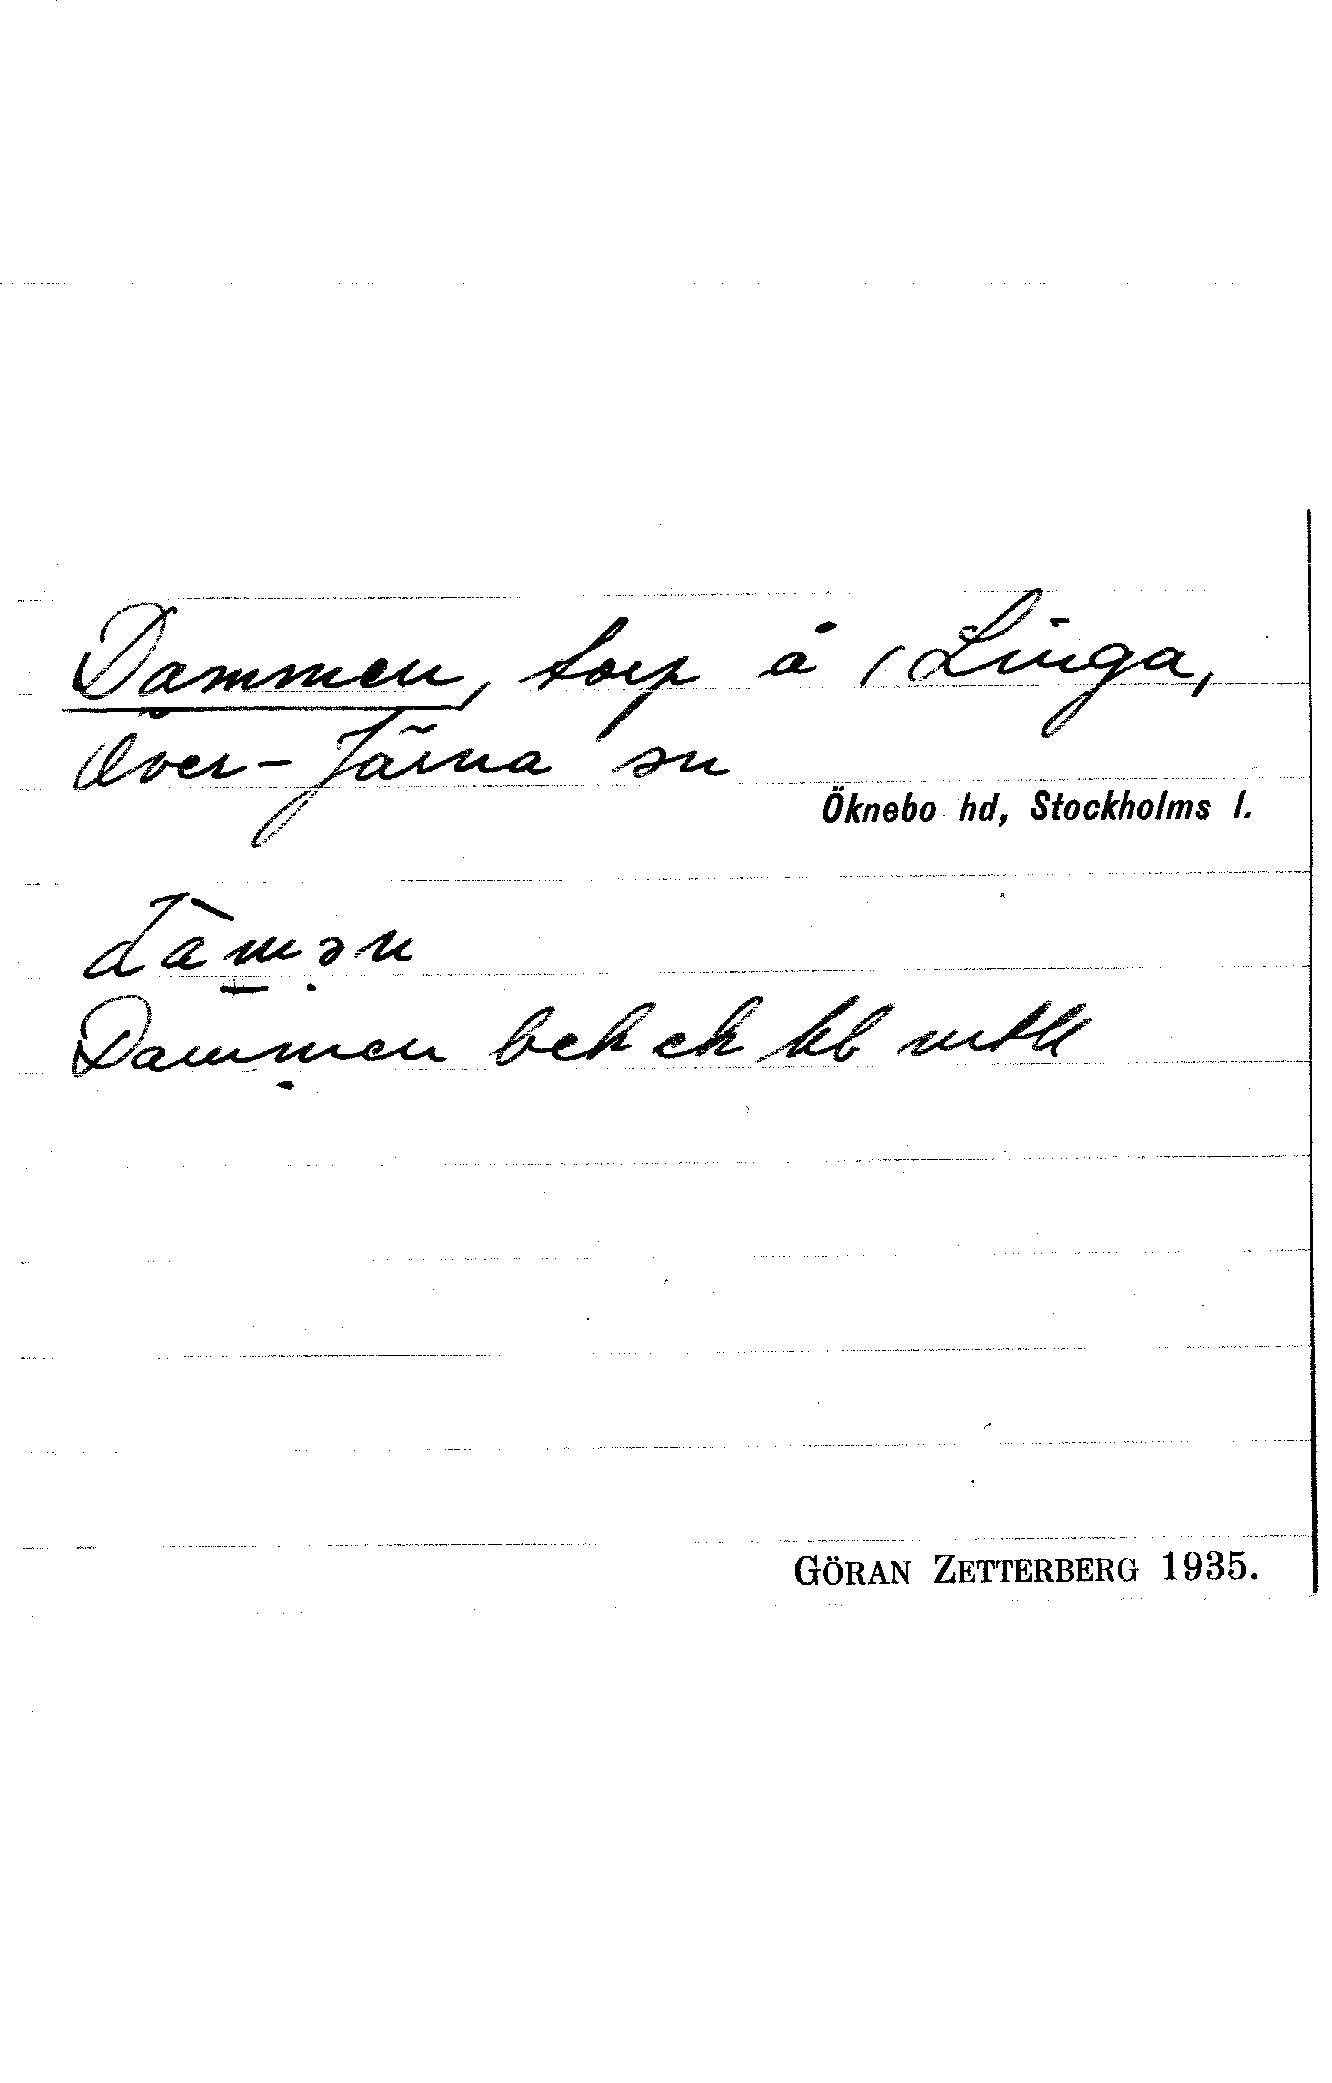 Dammen, torp å Linga,
Över-Järna sn
Öknebo hd, Stockholms l.
dàmən
Dammen bek ek kb mtl
GÖRAN ZETTERBERG 1935.